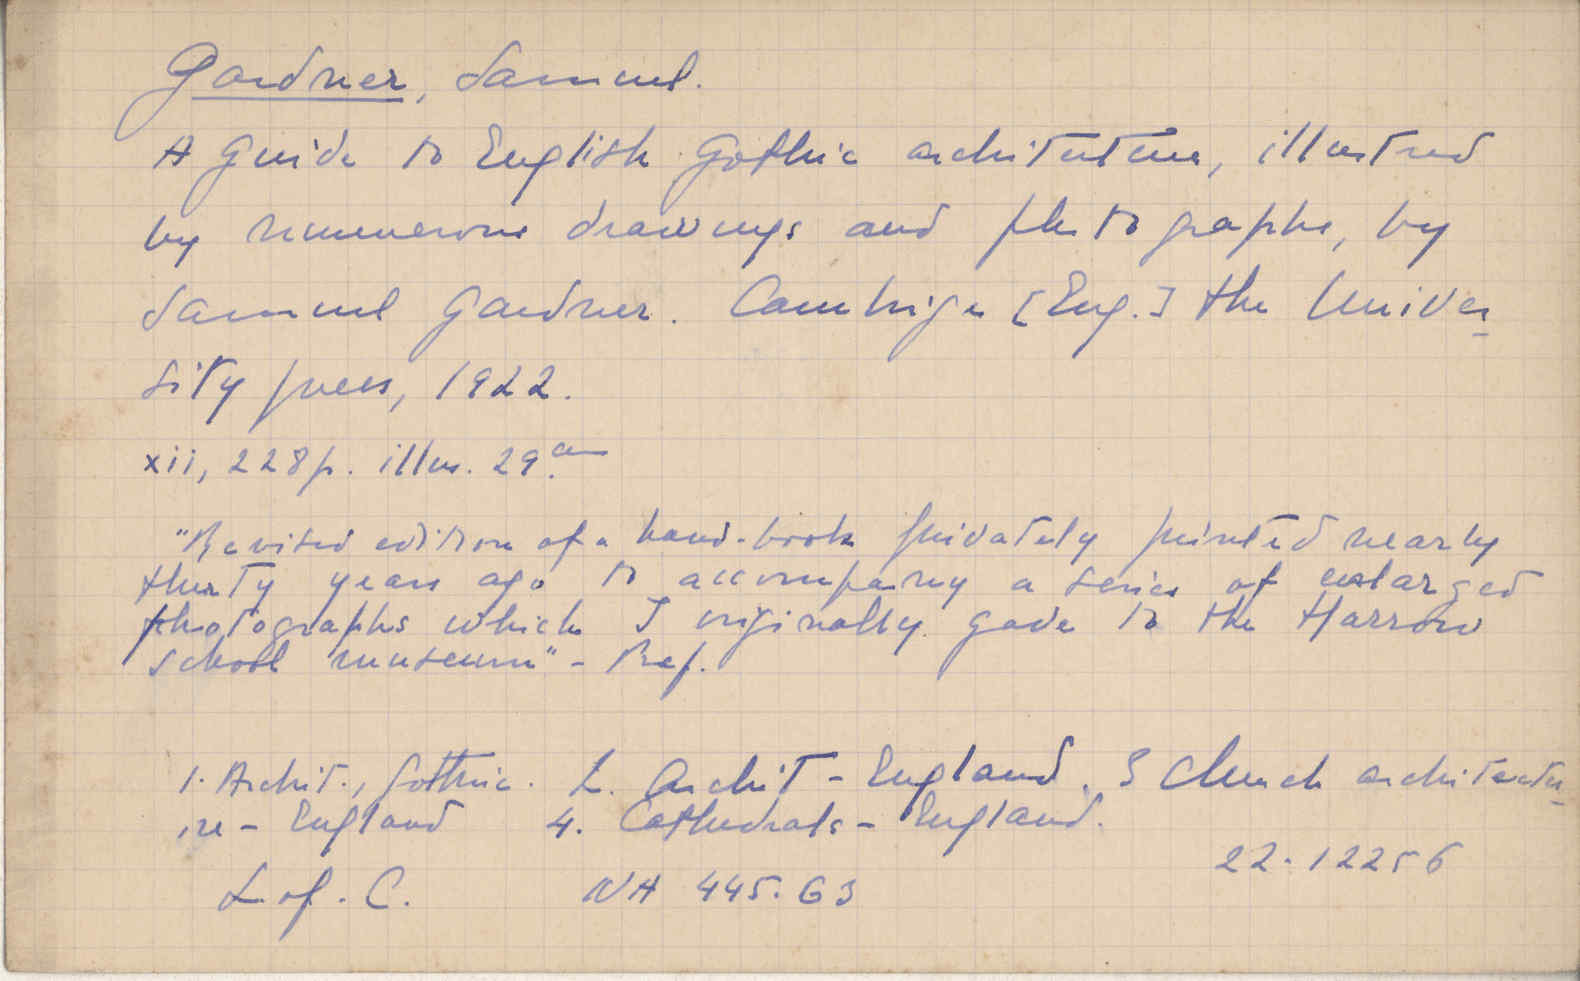 Gardner, Samuel.
A guide to English Gothic architecture, illustred
by numerous drawings and photographs, by
Samuel Gardner. Cambrige [Eng.] the Univer-
sity press, 1922.
xii, 228p. illus. 29cm.
"Revised edition of a hand-book privately printed nearly
thirty years ago to accompany a series of enlarged
photographs which I originally gave to the Harrow
school museum" - Pref.
1. Archit., Gothic. 2. Archit - England. 3 Church architectu-
re - England 4. Cathedrals - England.
22-12256
L. of. C. NA 445.G3